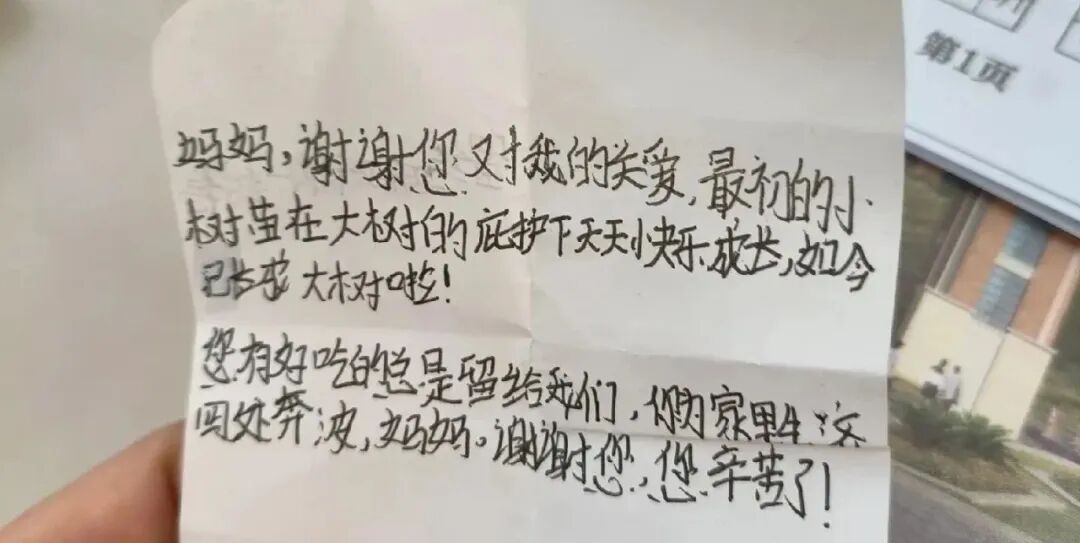 第1页
妈妈，谢谢您对我的关爱，最初的小
树苗在大树的庇护下天天快乐成长，如今
已长成大树啦！
您有好吃的总是留给我们，你为家里生活
四处奔波，妈妈。谢谢您，您辛苦了！